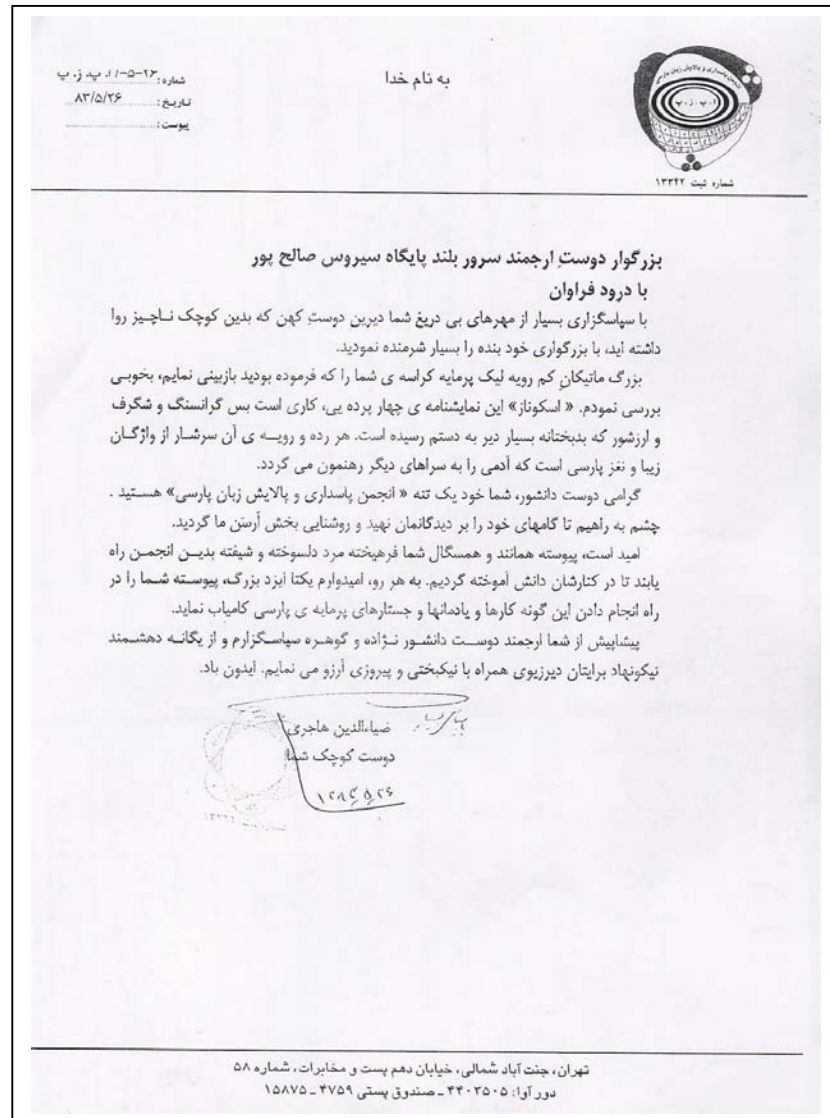 به نام خدا
شماره : ۲۶-۵-۱/ا. پ. ز. پ
تاریخ : ۸۳/۵/۲۶
پیوست :
انجمن پاسداری و پالایش زبان پارسی
ا . پ . ز . پ
شماره ثبت ۱۳۳۴۲
بزرگوار دوستِ ارجمند سرور بلند پایگاه سیروس صالح پور
با درود فراوان
با سپاسگزاری بسیار از مهرهای بی دریغ شما دیرین دوستِ کهن که بدین کوچک ناچیز روا
داشته اید، با بزرگواری خود بنده را بسیار شرمنده نمودید.
بزرگ ماتیکانِ کم رویه لیک پرمایه کراسه ی شما را که فرموده بودید بازبینی نمایم، بخوبی
بررسی نمودم. « اسکوناز» این نمایشنامه ی چهار پرده یی، کاری است بس گرانسنگ و شگرف
و ارزشور که بدبختانه بسیار دیر به دستم رسیده است. هر رده و رویه ی آن سرشار از واژگان
زیبا و نغز پارسی است که آدمی را به سراهای دیگر رهنمون می گردد.
گرامی دوست دانشور، شما خود یک تنه « انجمن پاسداری و پالایش زبان پارسی» هستید .
چشم به راهیم تا گامهای خود را بر دیدگانمان نهید و روشنایی بخش اَرسَن ما گردید.
امید است، پیوسته همانند و همسگال شما فرهیخته مرد دلسوخته و شیفته بدین انجمن راه
یابند تا در کنارشان دانش آموخته گردیم. به هر رو، امیدوارم یکتا ایزد بزرگ، پیوسته شما را در
راه انجام دادن این گونه کارها و یادمانها و جستارهای پرمایه ی پارسی کامیاب نماید.
پیشاپیش از شما ارجمند دوست دانشور نژاده و گوهره سپاسگزارم و از یگانه دهشمند
نیکونهاد برایتان دیرزیوی همراه با نیکبختی و پیروزی آرزو می نمایم. ایدون باد.
ضیاءالدین هاجری
دوست کوچک شما
۱۳۸۳/۵/۲۶
تهران، جنت آباد شمالی، خیابان دهم پست و مخابرات، شماره ۵۸
دور آوا: ۴۴۰۳۵۰۵ ـ صندوق پستی ۴۷۵۹ ـ ۱۵۸۷۵